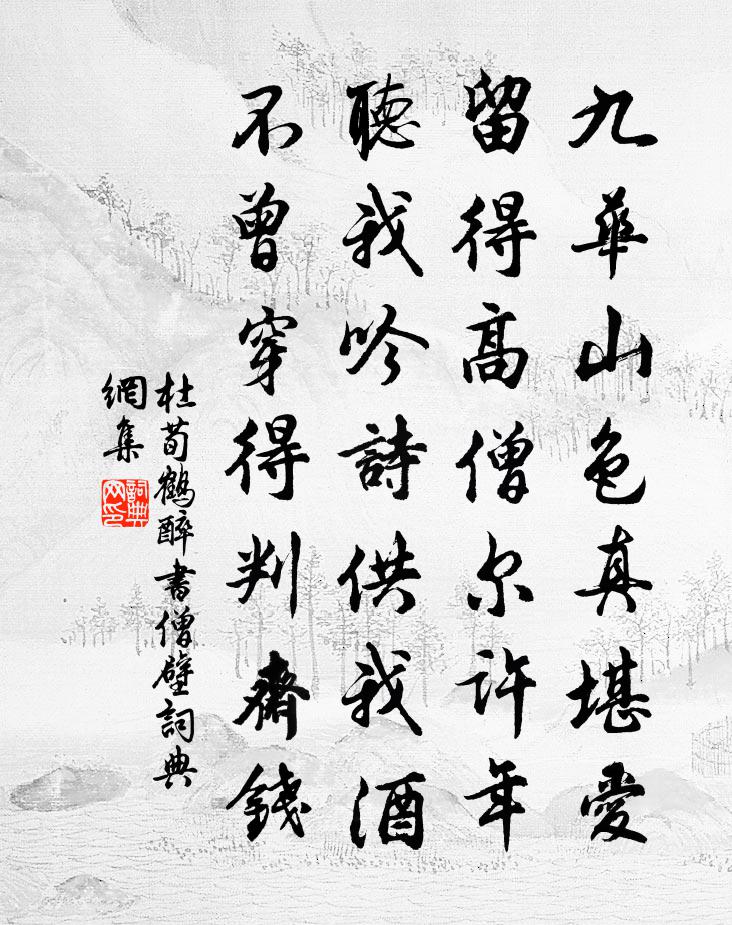 九華山色真堪愛
留得高僧尔許年
聽我吟詩供我酒
不曾穿得判齋錢
杜荀鶴醉書僧壁詞典
網集
詞典
网印